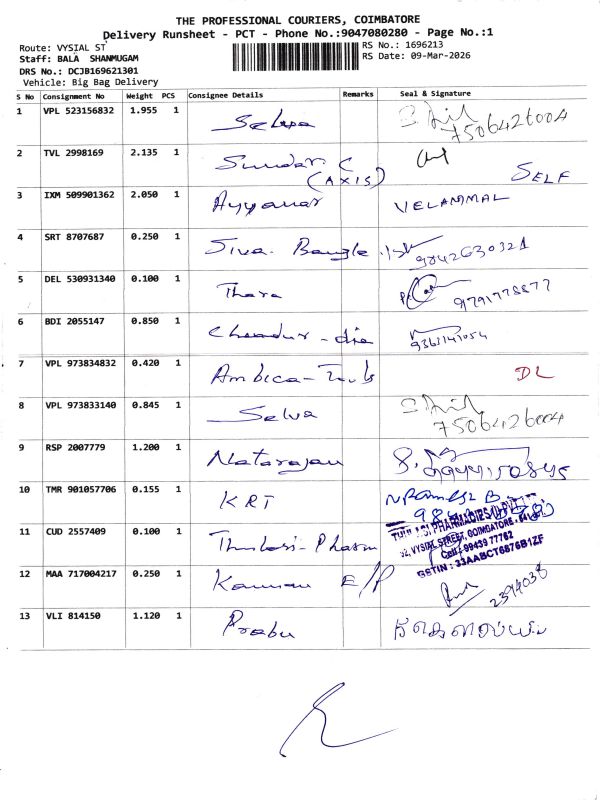 THE PROFESSIONAL COURIERS, COIMBATORE
Delivery Runsheet - PCT - Phone No.:9047080280 - Page No.:1
Route: VYSIAL ST
RS No.: 1696213
Staff: BALA SHANMUGAM
RS Date: 09-Mar-2026
DRS No.: DCJB169621301
Vehicle: Big Bag Delivery
S No Consignment No Weight PCS Consignee Details Remarks Seal & Signature
1 VPL 523156832 1.955 1 Selva
7506426004
2 TVL 2998169 2.135 1 Sundar C
(AXIS) SELF
3 IXM 509901362 2.050 1 Ayyanar VELAMMAL
4 SRT 8707687 0.250 1 Siva Bangle
9842630321
5 DEL 530931340 0.100 1 Thara
9791778877
6 BDI 2055147 0.850 1
9361141054
7 VPL 973834832 0.420 1 Ambica - DL
8 VPL 973833140 0.845 1 Selva
7506426004
9 RSP 2007779 1.200 1 Natarajan
10 TMR 901057706 0.155 1 KRT
11 CUD 2557409 0.100 1 Thulasi - Pharm
52, VYSIAL STREET, COIMBATORE
Cell: 99439 77762
GSTIN : 33AABCT6676B1ZF
12 MAA 717004217 0.250 1 Kannan E/P
2394038
13 VLI 814150 1.120 1 Prabu